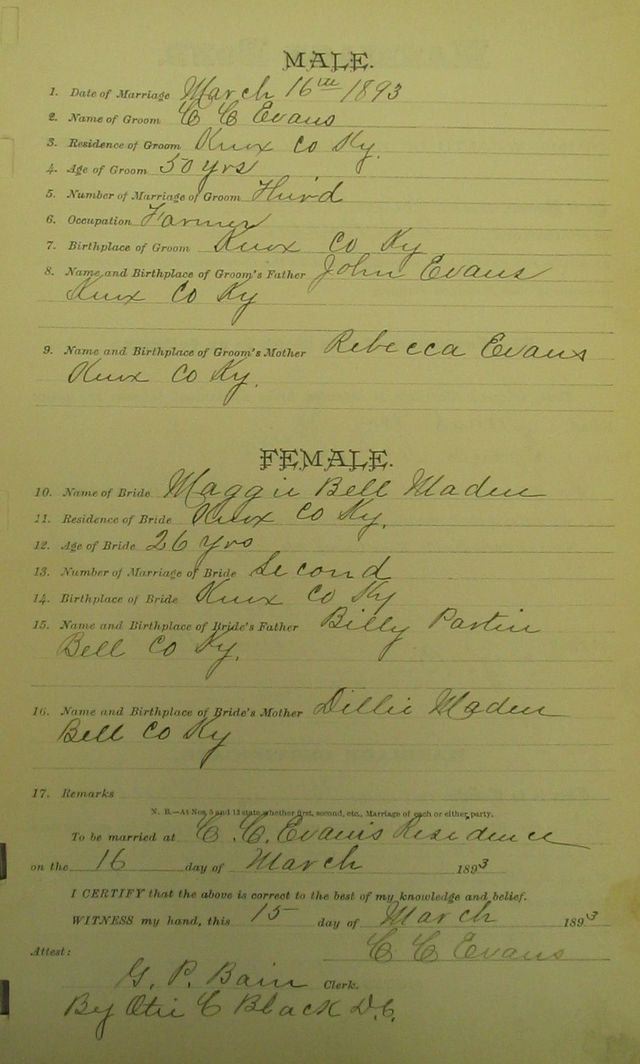 MALE.
1. Date of Marriage March 16th 1893
2. Name of Groom C C Evans
3. Residence of Groom Knox Co Ky.
4. Age of Groom 50 yrs
5. Number of Marriage of Groom Third
6. Occupation Farmer
7. Birthplace of Groom Knox Co Ky
8. Name and Birthplace of Groom's Father John Evans
Knox Co Ky
9. Name and Birthplace of Groom's Mother Rebecca Evans
Knox Co Ky.
FEMALE.
10. Name of Bride Maggie Bell Maden
11. Residence of Bride Knox Co Ky.
12. Age of Bride 26 yrs
13. Number of Marriage of Bride Second
14. Birthplace of Bride Knox Co Ky
15. Name and Birthplace of Bride's Father Billy Partin
Bell Co Ky.
16. Name and Birthplace of Bride's Mother Dillie Maden
Bell Co Ky
17. Remarks
N. B.—At Nos. 5 and 13 state whether first, second, etc., Marriage of each or either party.
To be married at C. C. Evans Residence
on the 16 day of March 1893
I CERTIFY that the above is correct to the best of my knowledge and belief.
WITNESS my hand, this 15 day of March 1893
C C Evans
Attest:
G. P. Bain Clerk.
By Otie C Black D.C.